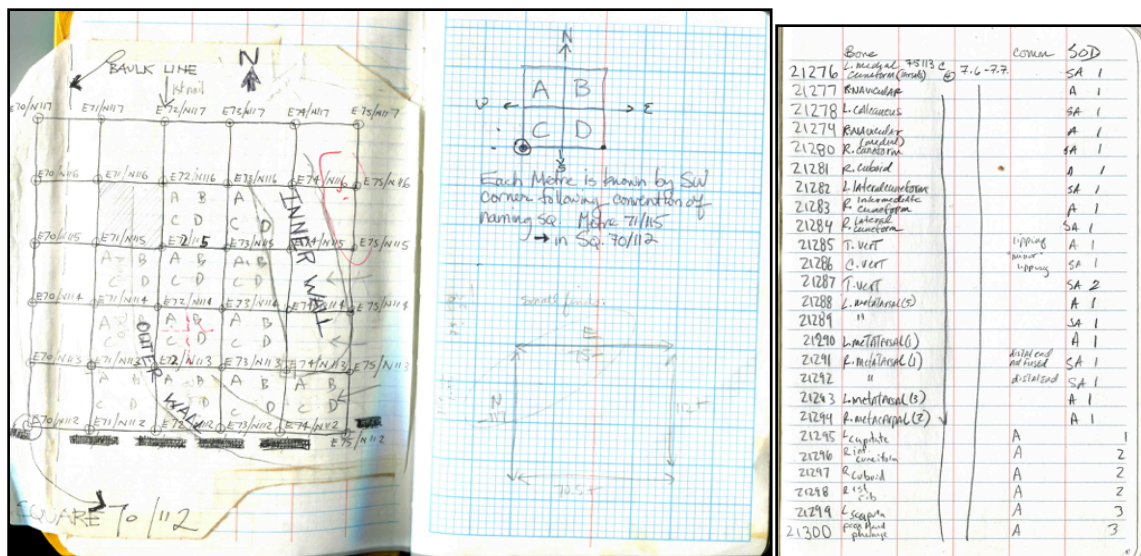 N
BAULK LINE
1st nail
E70/N117 E71/N117 E72/N117 E73/N117 E74/N117 E75/N117
E70/N116 E71/N116 E72/N116 E73/N116 E74/N116 E75/N116
A B A
C D C D
E70/N115 E71/N115 E72/115 E73/N115 E74/N115 E75/N115
A B A B A B
C D C D C D
E70/N114 E71/N114 E72/N114 E73/N114 E74/N114 E75/N114
A B A B A B
C D C D C D
E70/N113 E71/N113 E72/N113 E73/N113 E74/N113 E75/N113
A B A B A B A B
C D C D C D C D
E70/N112 E71/N112 E72/N112 E73/N112 E74/N112 E75/N112
INNER WALL
OUTER WALL
SQUARE 70/112
N
A B
W E
C D
S
Each Metre is known by SW
corner following convention of
naming sq. Metre 71/115
→ in Sq. 70/112
small finds
E
75
N
117
112
70.5
Bone Comm SOD
21276 L. medial cuneiform 75113 C 7.6-7.7 SA 1
21277 R Navicular A 1
21278 L. calcaneus SA 1
21279 R Navicular A 1
21280 R. (medial) cuneiform SA 1
21281 R. cuboid A 1
21282 L. lateral cuneiform SA 1
21283 R. intermediate cuneiform A 1
21284 R. lateral cuneiform SA 1
21285 T. vert lipping A 1
21286 C. vert minor lipping SA 1
21287 T. vert SA 2
21288 L. metatarsal (5) A 1
21289 " SA 1
21290 L. metatarsal (1) A 1
21291 R. metatarsal (1) distal end not fused SA 1
21292 " distal end SA 1
21293 L. metatarsal (3) A 1
21294 R. metacarpal (2) A 1
21295 L capitate A 1
21296 R int. cuneiform A 2
21297 R cuboid A 2
21298 R 1st rib A 2
21299 L scapula A 3
21300 prox hand phalange A 3